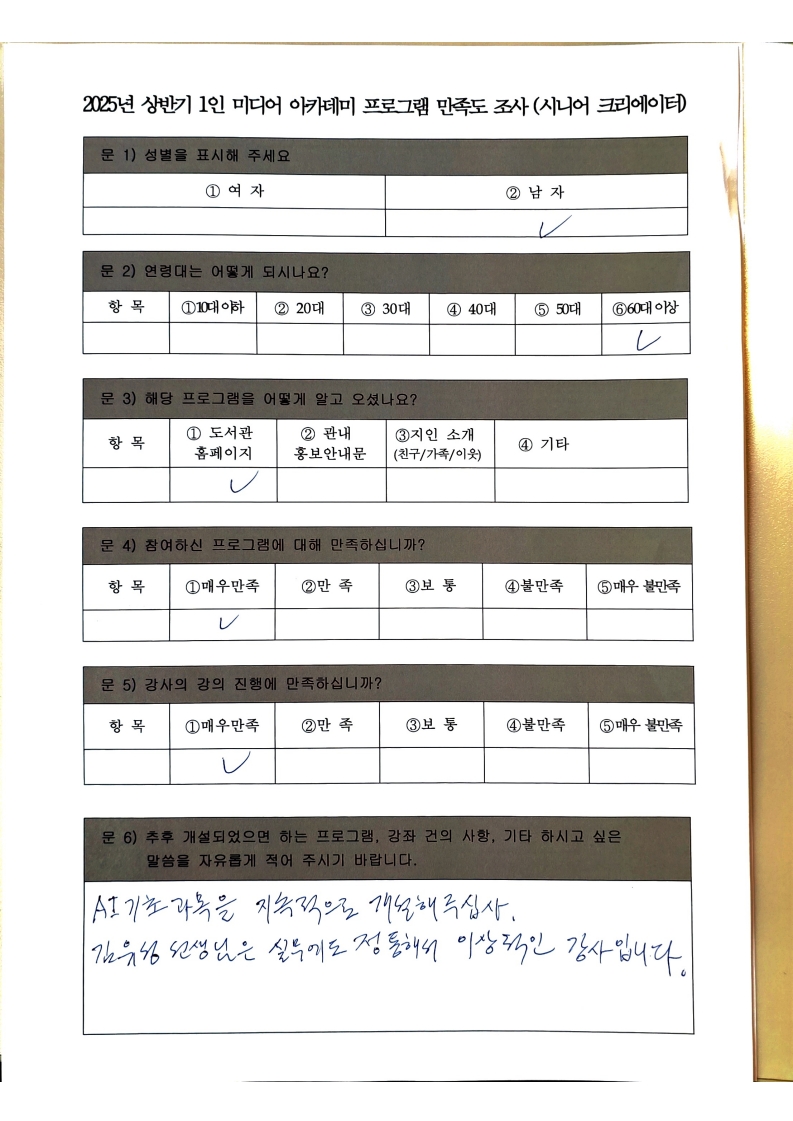 2025년 상반기 1인 미디어 아카데미 프로그램 만족도 조사 (시니어 크리에이터)
문 1) 성별을 표시해 주세요
① 여 자 ② 남 자
문 2) 연령대는 어떻게 되시나요?
항 목 ①10대이하 ② 20대 ③ 30대 ④ 40대 ⑤ 50대 ⑥60대이상
문 3) 해당 프로그램을 어떻게 알고 오셨나요?
항 목 ① 도서관 홈페이지 ② 관내 홍보안내문 ③지인 소개 (친구/가족/이웃) ④ 기타
문 4) 참여하신 프로그램에 대해 만족하십니까?
항 목 ①매우만족 ②만 족 ③보 통 ④불만족 ⑤매우 불만족
문 5) 강사의 강의 진행에 만족하십니까?
항 목 ①매우만족 ②만 족 ③보 통 ④불만족 ⑤매우 불만족
문 6) 추후 개설되었으면 하는 프로그램, 강좌 건의 사항, 기타 하시고 싶은
말씀을 자유롭게 적어 주시기 바랍니다.
AI 기초 과목을 지속적으로 개설해주십사.
선생님은 실무에도 정통해서 이상적인 강사입니다.